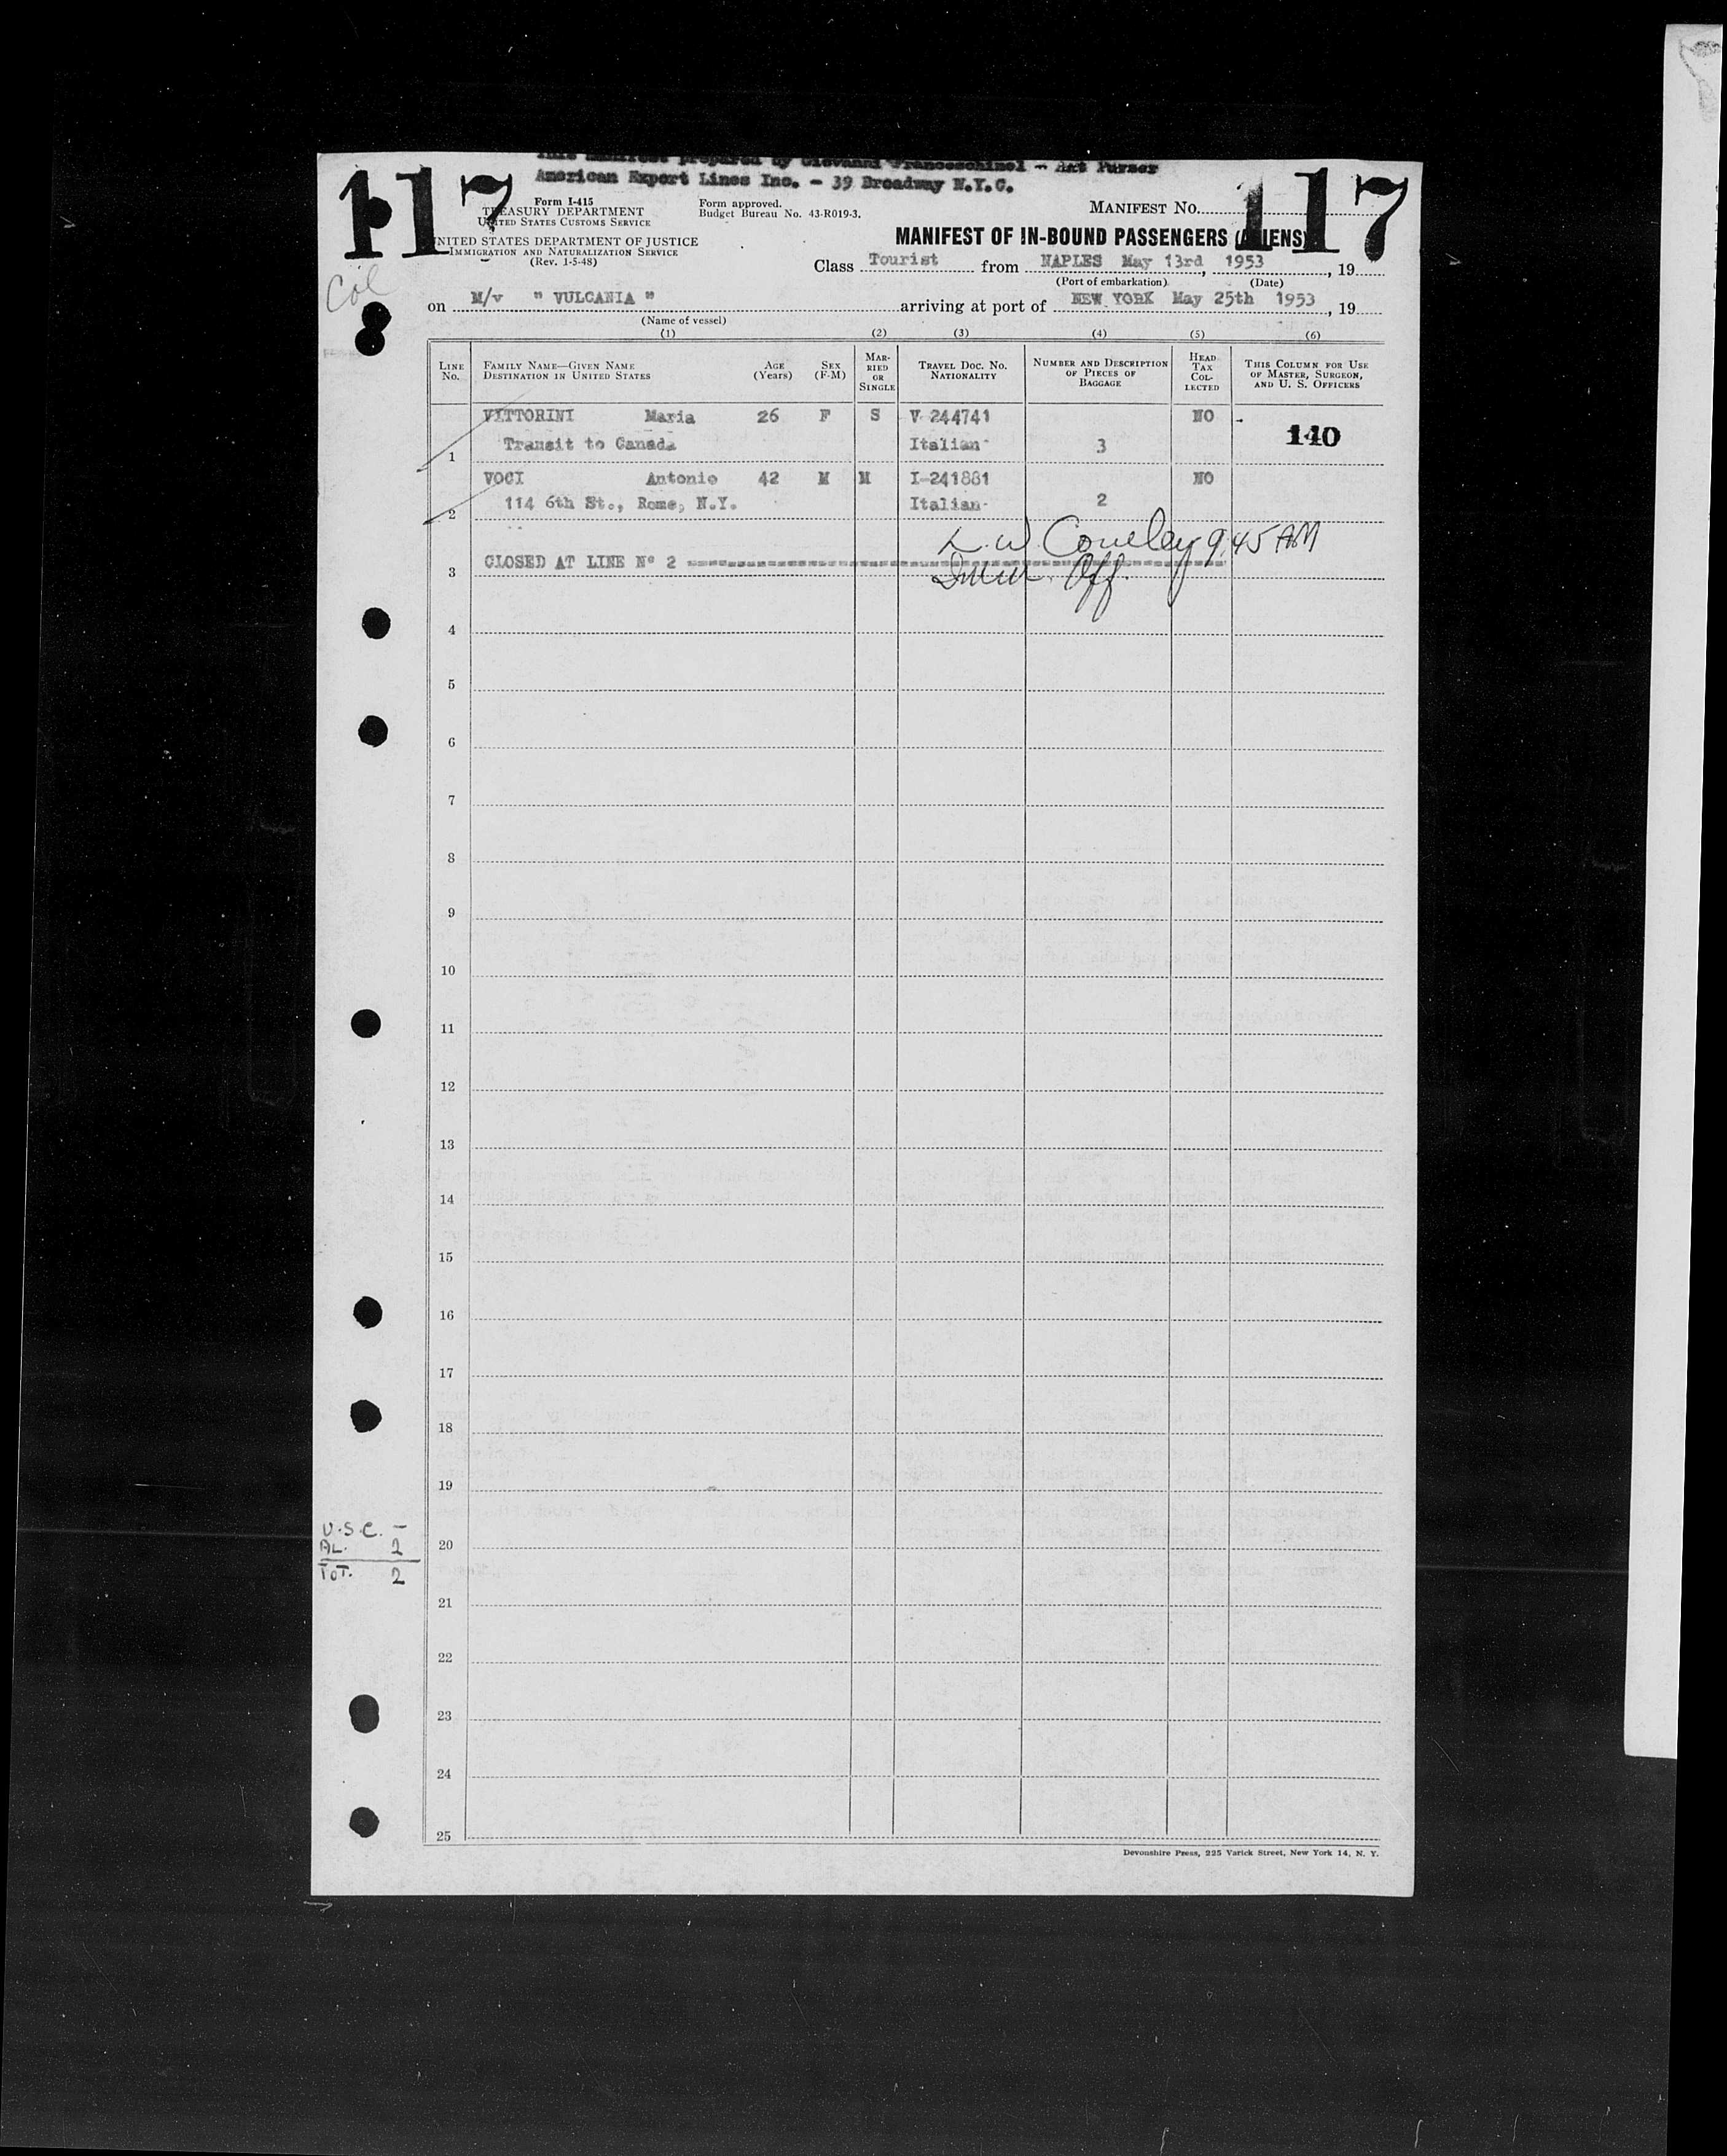 This manifest prepared by Giovanni Franceschinel - Ast Purser
American Export Lines Inc. - 39 Broadway N.Y.C.
117
117
Form I-415
TREASURY DEPARTMENT
UNITED STATES CUSTOMS SERVICE
UNITED STATES DEPARTMENT OF JUSTICE
IMMIGRATION AND NATURALIZATION SERVICE
(Rev. 1-5-48)
Form approved.
Budget Bureau No. 43-R019-3.
MANIFEST No.
MANIFEST OF IN-BOUND PASSENGERS (ALIENS)
Class Tourist from NAPLES May 13rd, 1953, 19
(Port of embarkation) (Date)
Col
8
on M/v " VULCANIA " arriving at port of NEW YORK May 25th 1953, 19
(Name of vessel)
(1) (2) (3) (4) (5) (6)
LINE No. FAMILY NAME—GIVEN NAME DESTINATION IN UNITED STATES AGE (Years) SEX (F-M) MARRIED OR SINGLE TRAVEL DOC. NO. NATIONALITY NUMBER AND DESCRIPTION OF PIECES OF BAGGAGE HEAD TAX COLLECTED THIS COLUMN FOR USE OF MASTER, SURGEON, AND U. S. OFFICERS
VITTORINI Maria 26 F S V 244741 NO
1 Transit to Canada Italian 3 140
VOCI Antonio 42 M M I-241881 NO
2 114 6th St., Rome, N.Y. Italian 2
L. W. Coneley 9.45 AM
3 CLOSED AT LINE N° 2
Imm. Off.
4
5
6
7
8
9
10
11
12
13
14
15
16
17
18
19
U.S.C. -
20
AL. 2
TOT. 2
21
22
23
24
25
Devonshire Press, 225 Varick Street, New York 14, N. Y.